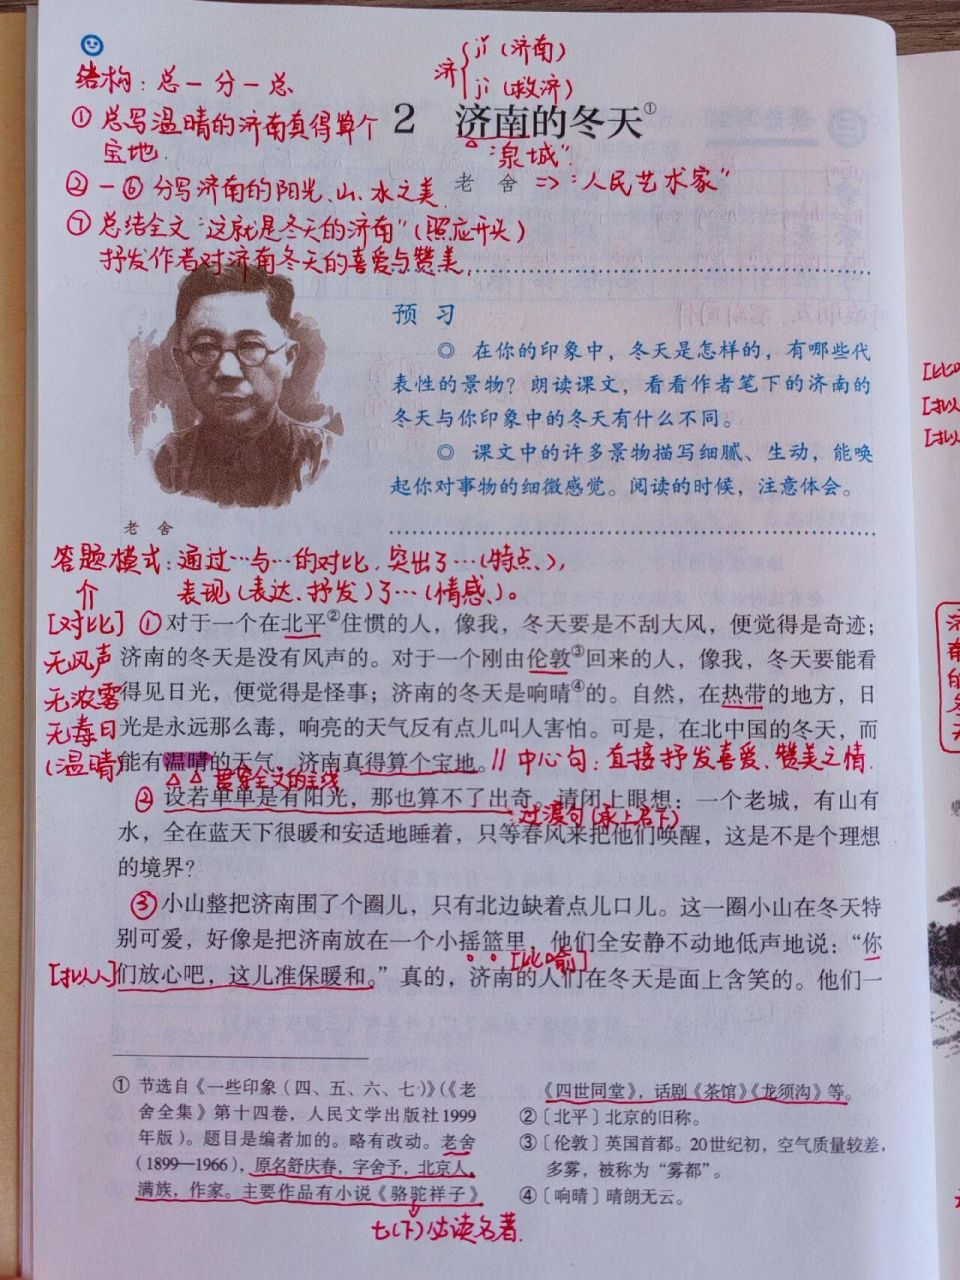 结构：总一分一总
①总写温晴的济南真得算个
宝地.
②一⑥分写济南的阳光、山、水之美.
⑦总结全文"这就是冬天的济南"(照应开头)
抒发作者对济南冬天的喜爱与赞美.
济
jǐ (济南)
jì (救济)
2 济南的冬天①
"泉城".
老 舍 => "人民艺术家"
预 习
◎ 在你的印象中，冬天是怎样的，有哪些代
表性的景物？朗读课文，看看作者笔下的济南的
冬天与你印象中的冬天有什么不同。
◎ 课文中的许多景物描写细腻、生动，能唤
起你对事物的细微感觉。阅读的时候，注意体会。
老 舍
答题模式：通过…与…的对比，突出了…(特点、)，
介
表现(表达、抒发)了…(情感、)。
[对比]
无风声
无浓雾
无毒日
(温晴)
①对于一个在北平②住惯的人，像我，冬天要是不刮大风，便觉得是奇迹；
济南的冬天是没有风声的。对于一个刚由伦敦③回来的人，像我，冬天要能看
得见日光，便觉得是怪事；济南的冬天是响晴④的。自然，在热带的地方，日
光是永远那么毒，响亮的天气反有点儿叫人害怕。可是，在北中国的冬天，而
能有温晴的天气，济南真得算个宝地。// 中心句：直接抒发喜爱、赞美之情.
贯穿全文的主线
②设若单单是有阳光，那也算不了出奇。请闭上眼想：一个老城，有山有
：过渡句(承上启下)
水，全在蓝天下很暖和安适地睡着，只等春风来把他们唤醒，这是不是个理想
的境界？
③小山整把济南围了个圈儿，只有北边缺着点儿口儿。这一圈小山在冬天特
别可爱，好像是把济南放在一个小摇篮里，他们全安静不动地低声地说：“你
[比喻]
[拟人]们放心吧，这儿准保暖和。”真的，济南的人们在冬天是面上含笑的。他们一
① 节选自《一些印象（四、五、六、七）》（《老
舍全集》第十四卷，人民文学出版社1999
年版）。题目是编者加的。略有改动。老舍
（1899—1966），原名舒庆春，字舍予，北京人，
满族，作家。主要作品有小说《骆驼祥子》
七(下)必读名著.
《四世同堂》，话剧《茶馆》《龙须沟》等。
②〔北平〕北京的旧称。
③〔伦敦〕英国首都。20世纪初，空气质量较差，
多雾，被称为“雾都”。
④〔响晴〕晴朗无云。